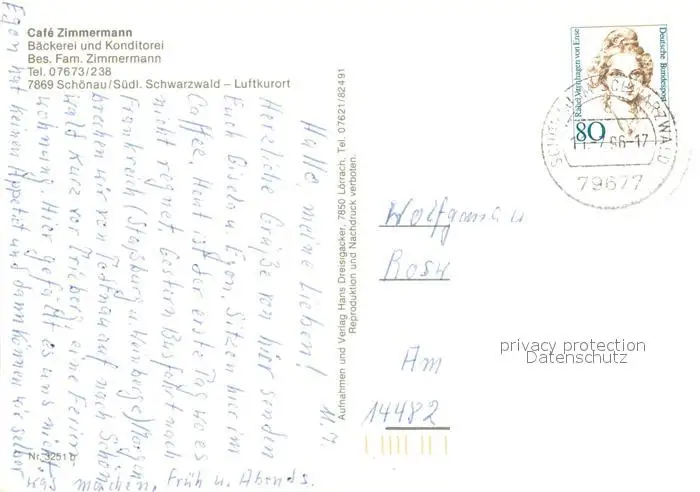 Café Zimmermann
Bäckerei und Konditorei
Bes. Fam. Zimmermann
Tel. 07673/238
7869 Schönau/Südl. Schwarzwald – Luftkurort
Hallo, meine Lieben!
Herzliche Grüße von hier senden
Euch Gisela u. Egon. Sitzen hier im
Caffee. Heut ist der erste Tag wo es
nicht regnet. Gestern Busfahrt nach
Frankreich (Straßburg u. Vogesen) Morgen
brechen wir von Todtnau auf nach Schön
wald kurz vor Triberg, eine Ferien-
wohnung. Hier gefällt es uns nicht
Egon hat keinen Appetit und dann können wir selber
was machen, früh u. Abends.
Nr. 3251 b
Aufnahmen und Verlag Hans Dreisigacker, 7850 Lörrach, Tel. 07621/82491
Reproduktion und Nachdruck verboten.
Deutsche Bundespost
Rahel Varnhagen von Ense
80
SCHWARZWALD
-7.96-17
79677
Wolfgang u
Am
14482
privacy protection
Datenschutz